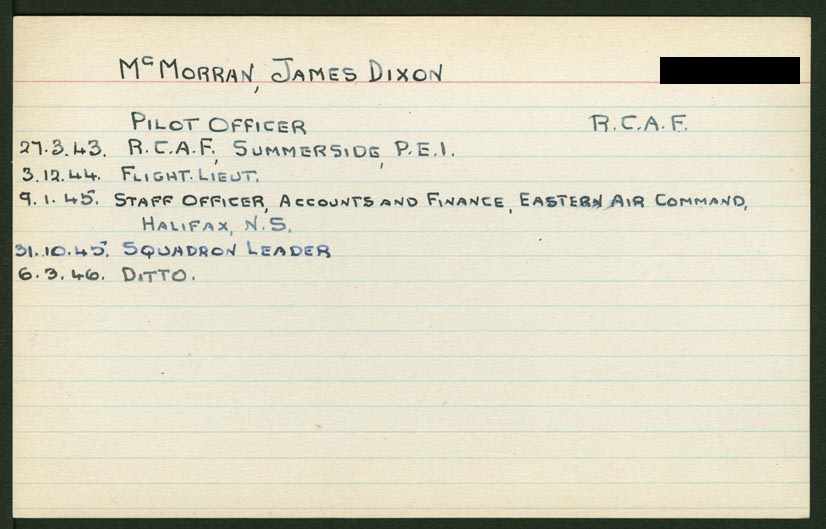 McMORRAN, JAMES DIXON
PILOT OFFICER R.C.A.F.
27.3.43. R.C.A.F., SUMMERSIDE, P.E.I.
3.12.44. FLIGHT. LIEUT.
9.1.45. STAFF OFFICER, ACCOUNTS AND FINANCE, EASTERN AIR COMMAND,
HALIFAX, N.S.
31.10.45. SQUADRON LEADER
6.3.46. DITTO.